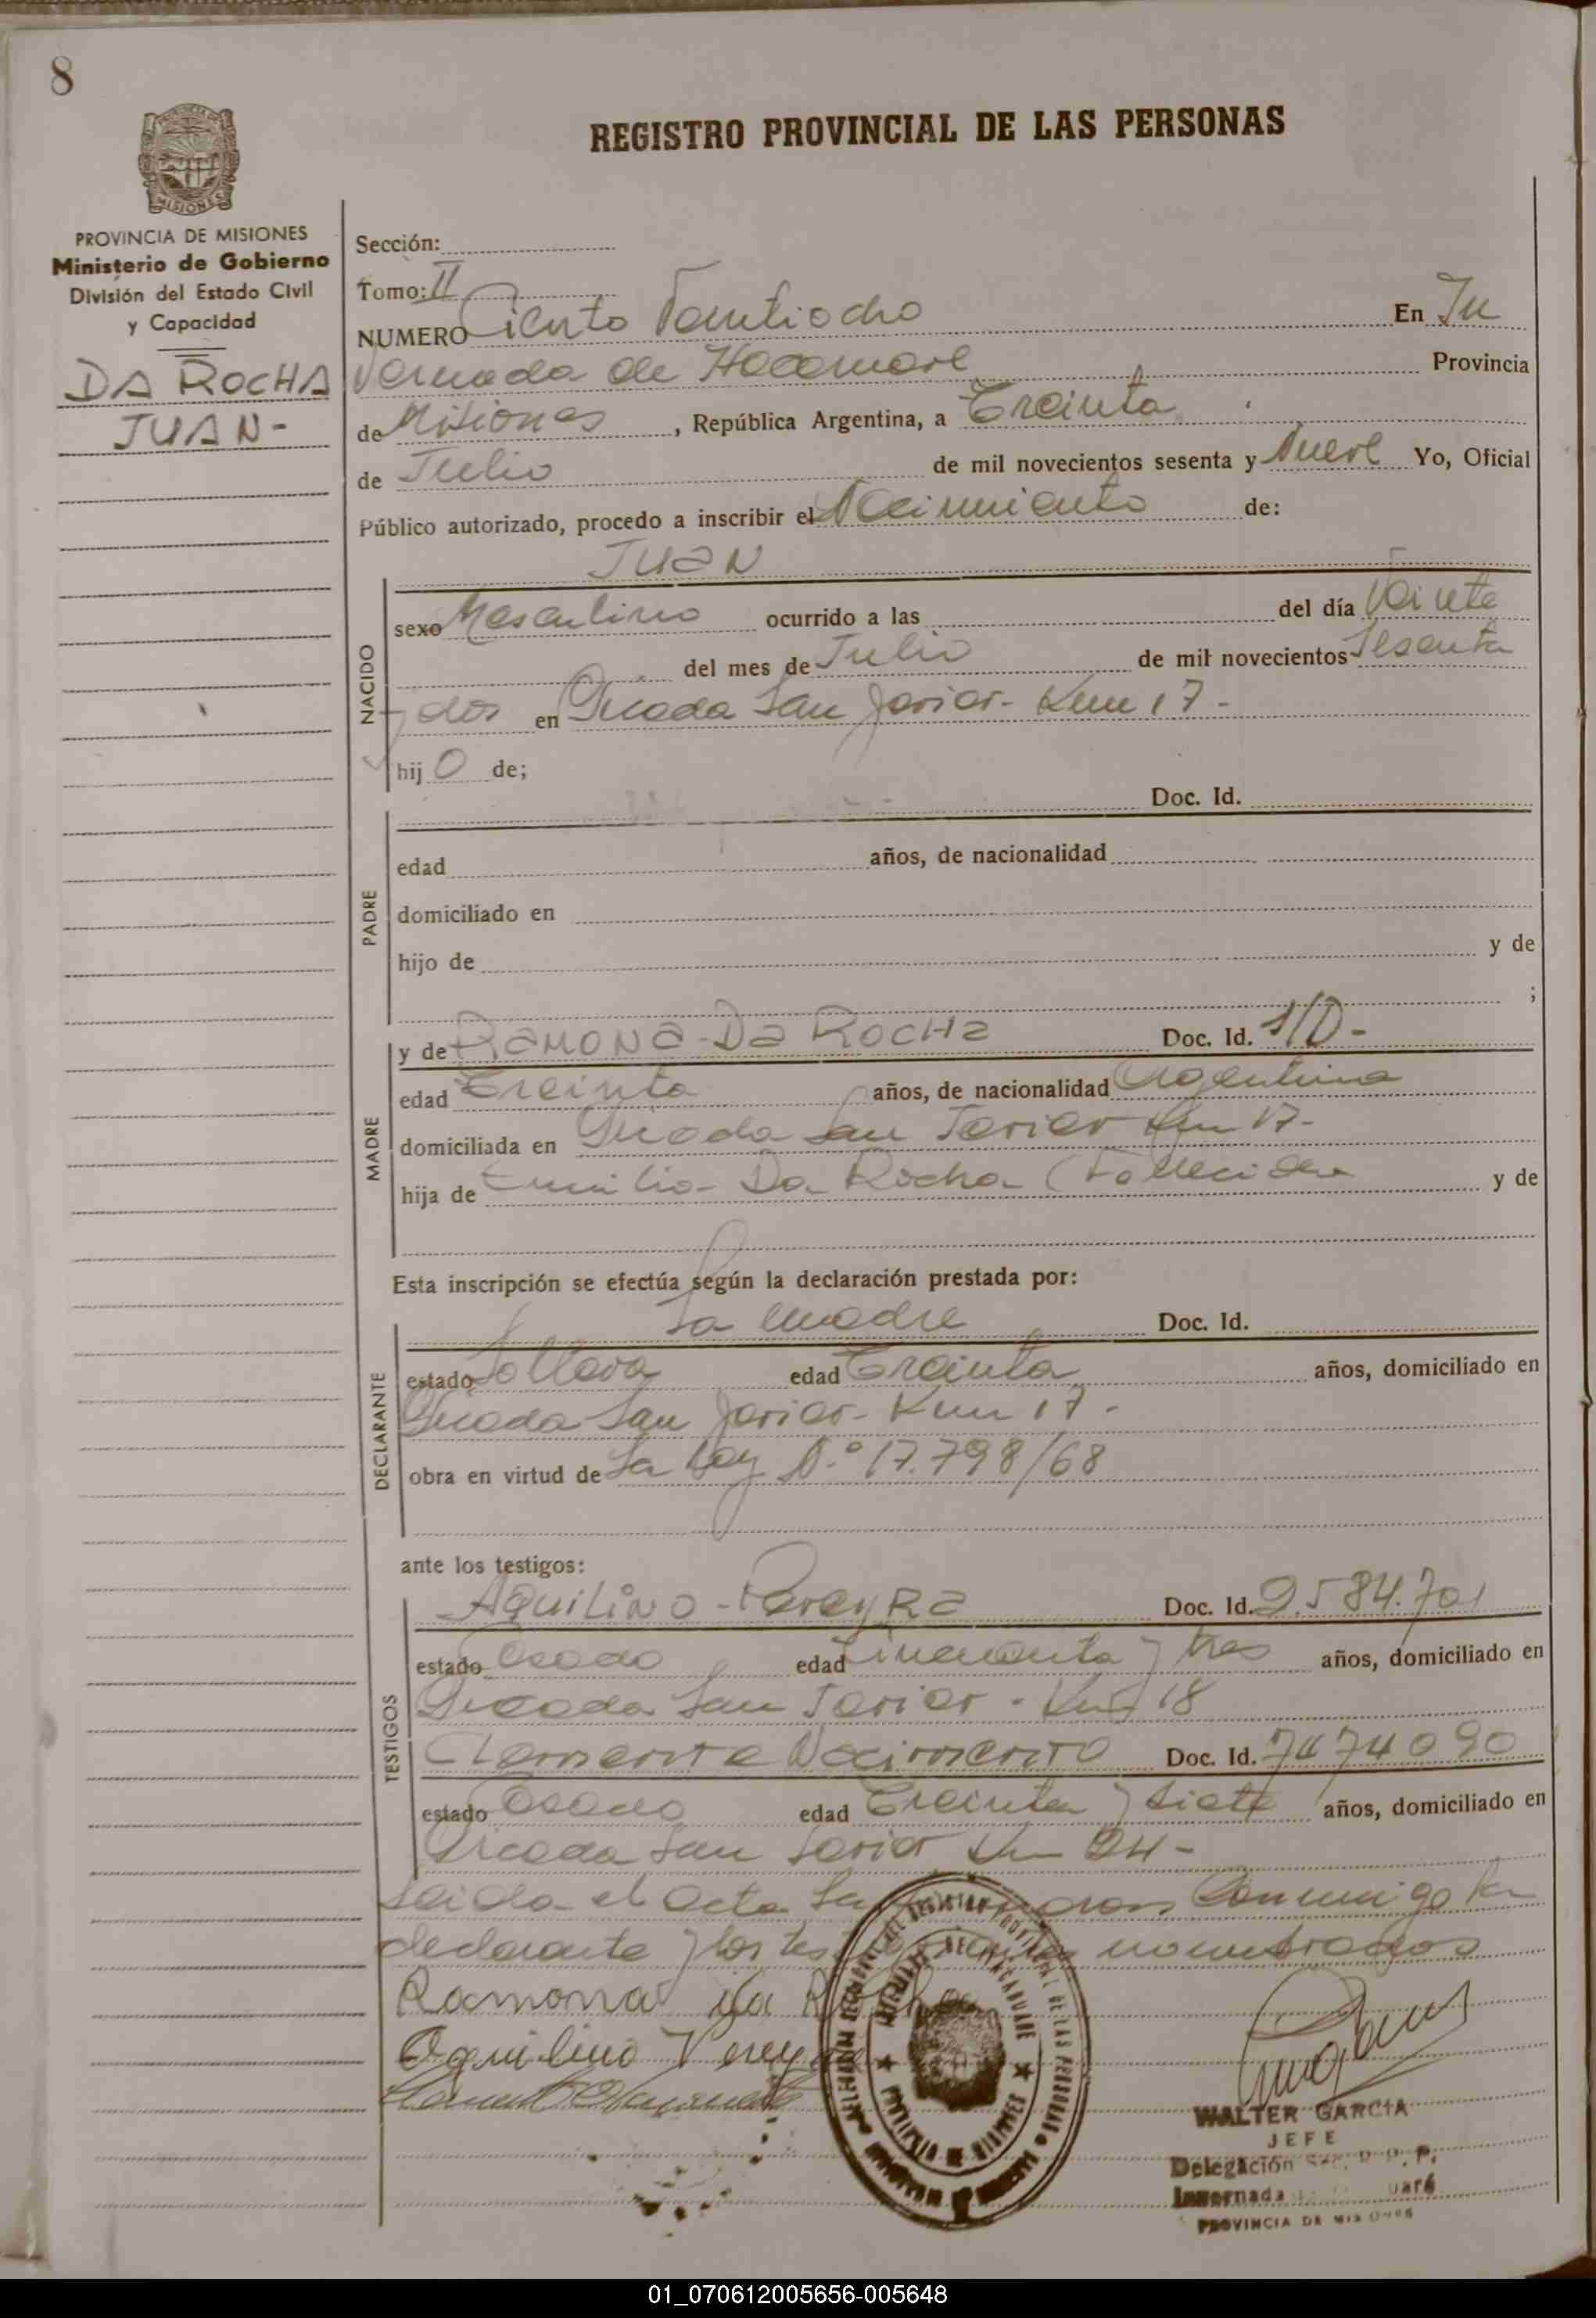 8
REGISTRO PROVINCIAL DE LAS PERSONAS
MISIONES
PROVINCIA DE MISIONES
Ministerio de Gobierno
División del Estado Civil
y Capacidad
DA ROCHA
JUAN-
Sección:
Tomo: II
NUMERO Ciento Veintiocho En In
vernada de Provincia
de Misiones, República Argentina, a Treinta
de Julio de mil novecientos sesenta y Nueve Yo, Oficial
Público autorizado, procedo a inscribir el Nacimiento de:
JUAN
NACIDO
sexo Masculino ocurrido a las del día Veinte
del mes de Julio de mil novecientos Sesenta
y dos en Picada San Javier- Km 17-
hij o de;
Doc. Id.
PADRE
edad años, de nacionalidad
domiciliado en
hijo de y de
;
MADRE
y de RAMONA-DA ROCHA Doc. Id. S/D-
edad Treinta años, de nacionalidad Argentina
domiciliada en Picada San Javier Km 17-
hija de Da Rocha y de
Esta inscripción se efectúa según la declaración prestada por:
La madre Doc. Id.
DECLARANTE
estado Soltera edad Treinta años, domiciliado en
Picada San Javier- Km 17-
obra en virtud de La Ley N.° 17.798/68
ante los testigos:
TESTIGOS
AQUILINO-PereyRA Doc. Id. 2.584.701
estado Casado edad Cincuenta y tres años, domiciliado en
Picada San Javier - Km 18
Clemente Nacimento Doc. Id. 7474090
estado Casado edad Treinta y siete años, domiciliado en
Picada San Javier Km 24-
Leida el acta La Conmigo la
declarante y los nombrados
Ramona da
Aquilino Pereyra
WALTER GARCIA
JEFE
Delegación
Invernada
PROVINCIA DE MISIONES
01_070612005656-005648